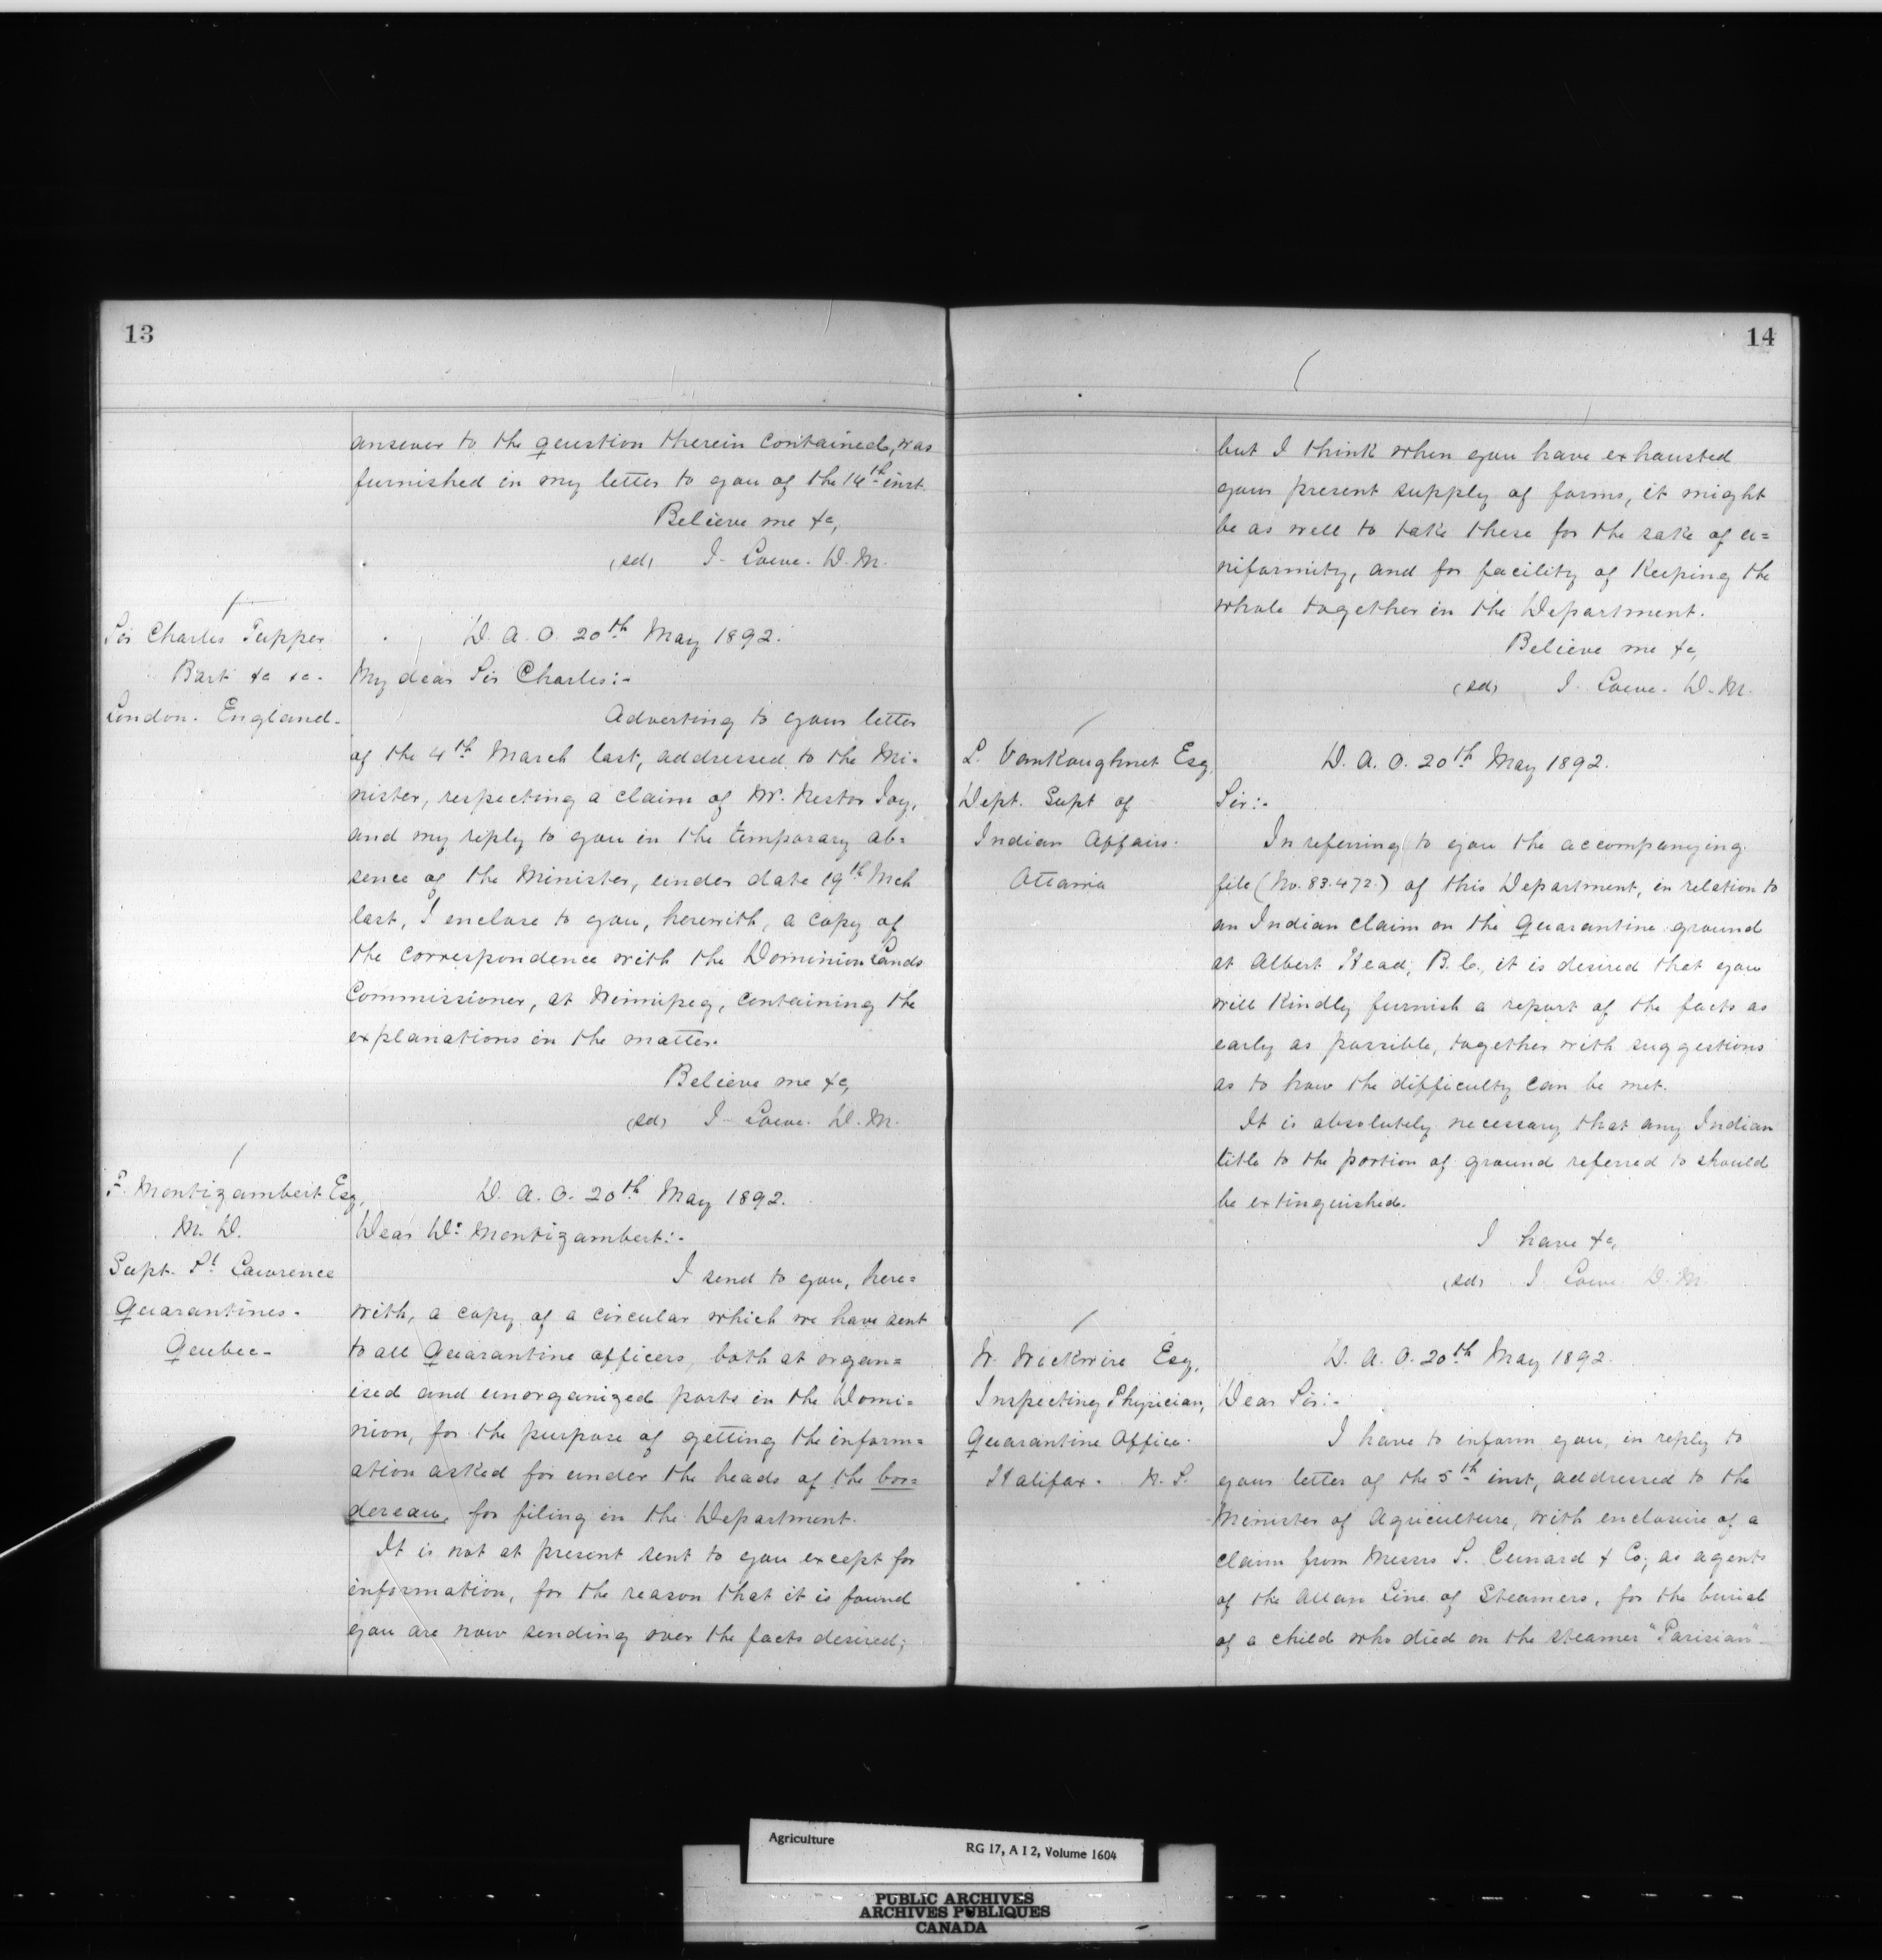 13
answer to the question therein contained, was
furnished in my letter to you of the 14th inst.
Believe me &c,
(sd) J. Lowe. D. M.
Sir Charles Tupper
Bart &c &c.
London. England.
D. A. O. 20th May 1892.
My dear Sir Charles:-
Adverting to your letter
of the 4th March last, addressed to the Mi=
nister, respecting a claim of Mr. Nestor Joy,
and my reply to you in the temporary ab=
sence of the Minister, under date 19th Mch
last, I enclose to you, herewith, a copy of
the correspondence with the Dominion Lands
Commissioner, at Winnipeg, containing the
explanations in the matter.
Believe me &c,
(sd) J. Lowe. D. M.
F. Montizambert Esq,
M. D.
Supt. St. Lawrence
Quarantines.
Quebec.
D. A. O. 20th May 1892.
Dear Dr. Montizambert:-
I send to you, here=
with, a copy of a circular which we have sent
to all Quarantine officers, both at organ=
ised and unorganized ports in the Domi=
nion, for the purpose of getting the inform=
ation asked for under the heads of the bor=
dereau, for filing in the Department.
It is not at present sent to you except for
information, for the reason that it is found
you are now sending over the facts desired;
14
but I think when you have exhausted
your present supply of forms, it might
be as well to take these for the sake of u=
niformity, and for facility of keeping the
whole together in the Department.
Believe me &c,
(sd) J. Lowe. D. M.
L. VanKoughnet Esq.
Dept. Supt of
Indian Affairs.
Ottawa
D. A. O. 20th May 1892.
Sir:-
In referring to you the accompanying
file (No. 83.472.) of this Department, in relation to
an Indian claim on the Quarantine ground
at Albert Head, B. C., it is desired that you
will kindly furnish a report of the facts as
early as possible, together with suggestions
as to how the difficulty can be met.
It is absolutely necessary that any Indian
title to the portion of ground referred to should
be extinguished.
I have &c,
(sd) J. Lowe D. M.
W. Wickwire Esq,
Inspecting Physician,
Quarantine Office.
Halifax. N. S.
D. A. O. 20th May 1892.
Dear Sir:-
I have to inform you, in reply to
your letter of the 5th inst, addressed to the
Minister of Agriculture, with enclosure of a
claim from Messrs S. Cunard & Co; as agents
of the Allan Line of Steamers, for the burial
of a child who died on the steamer "Parisian"
Agriculture
RG 17, A I 2, Volume 1604
PUBLIC ARCHIVES
ARCHIVES PUBLIQUES
CANADA